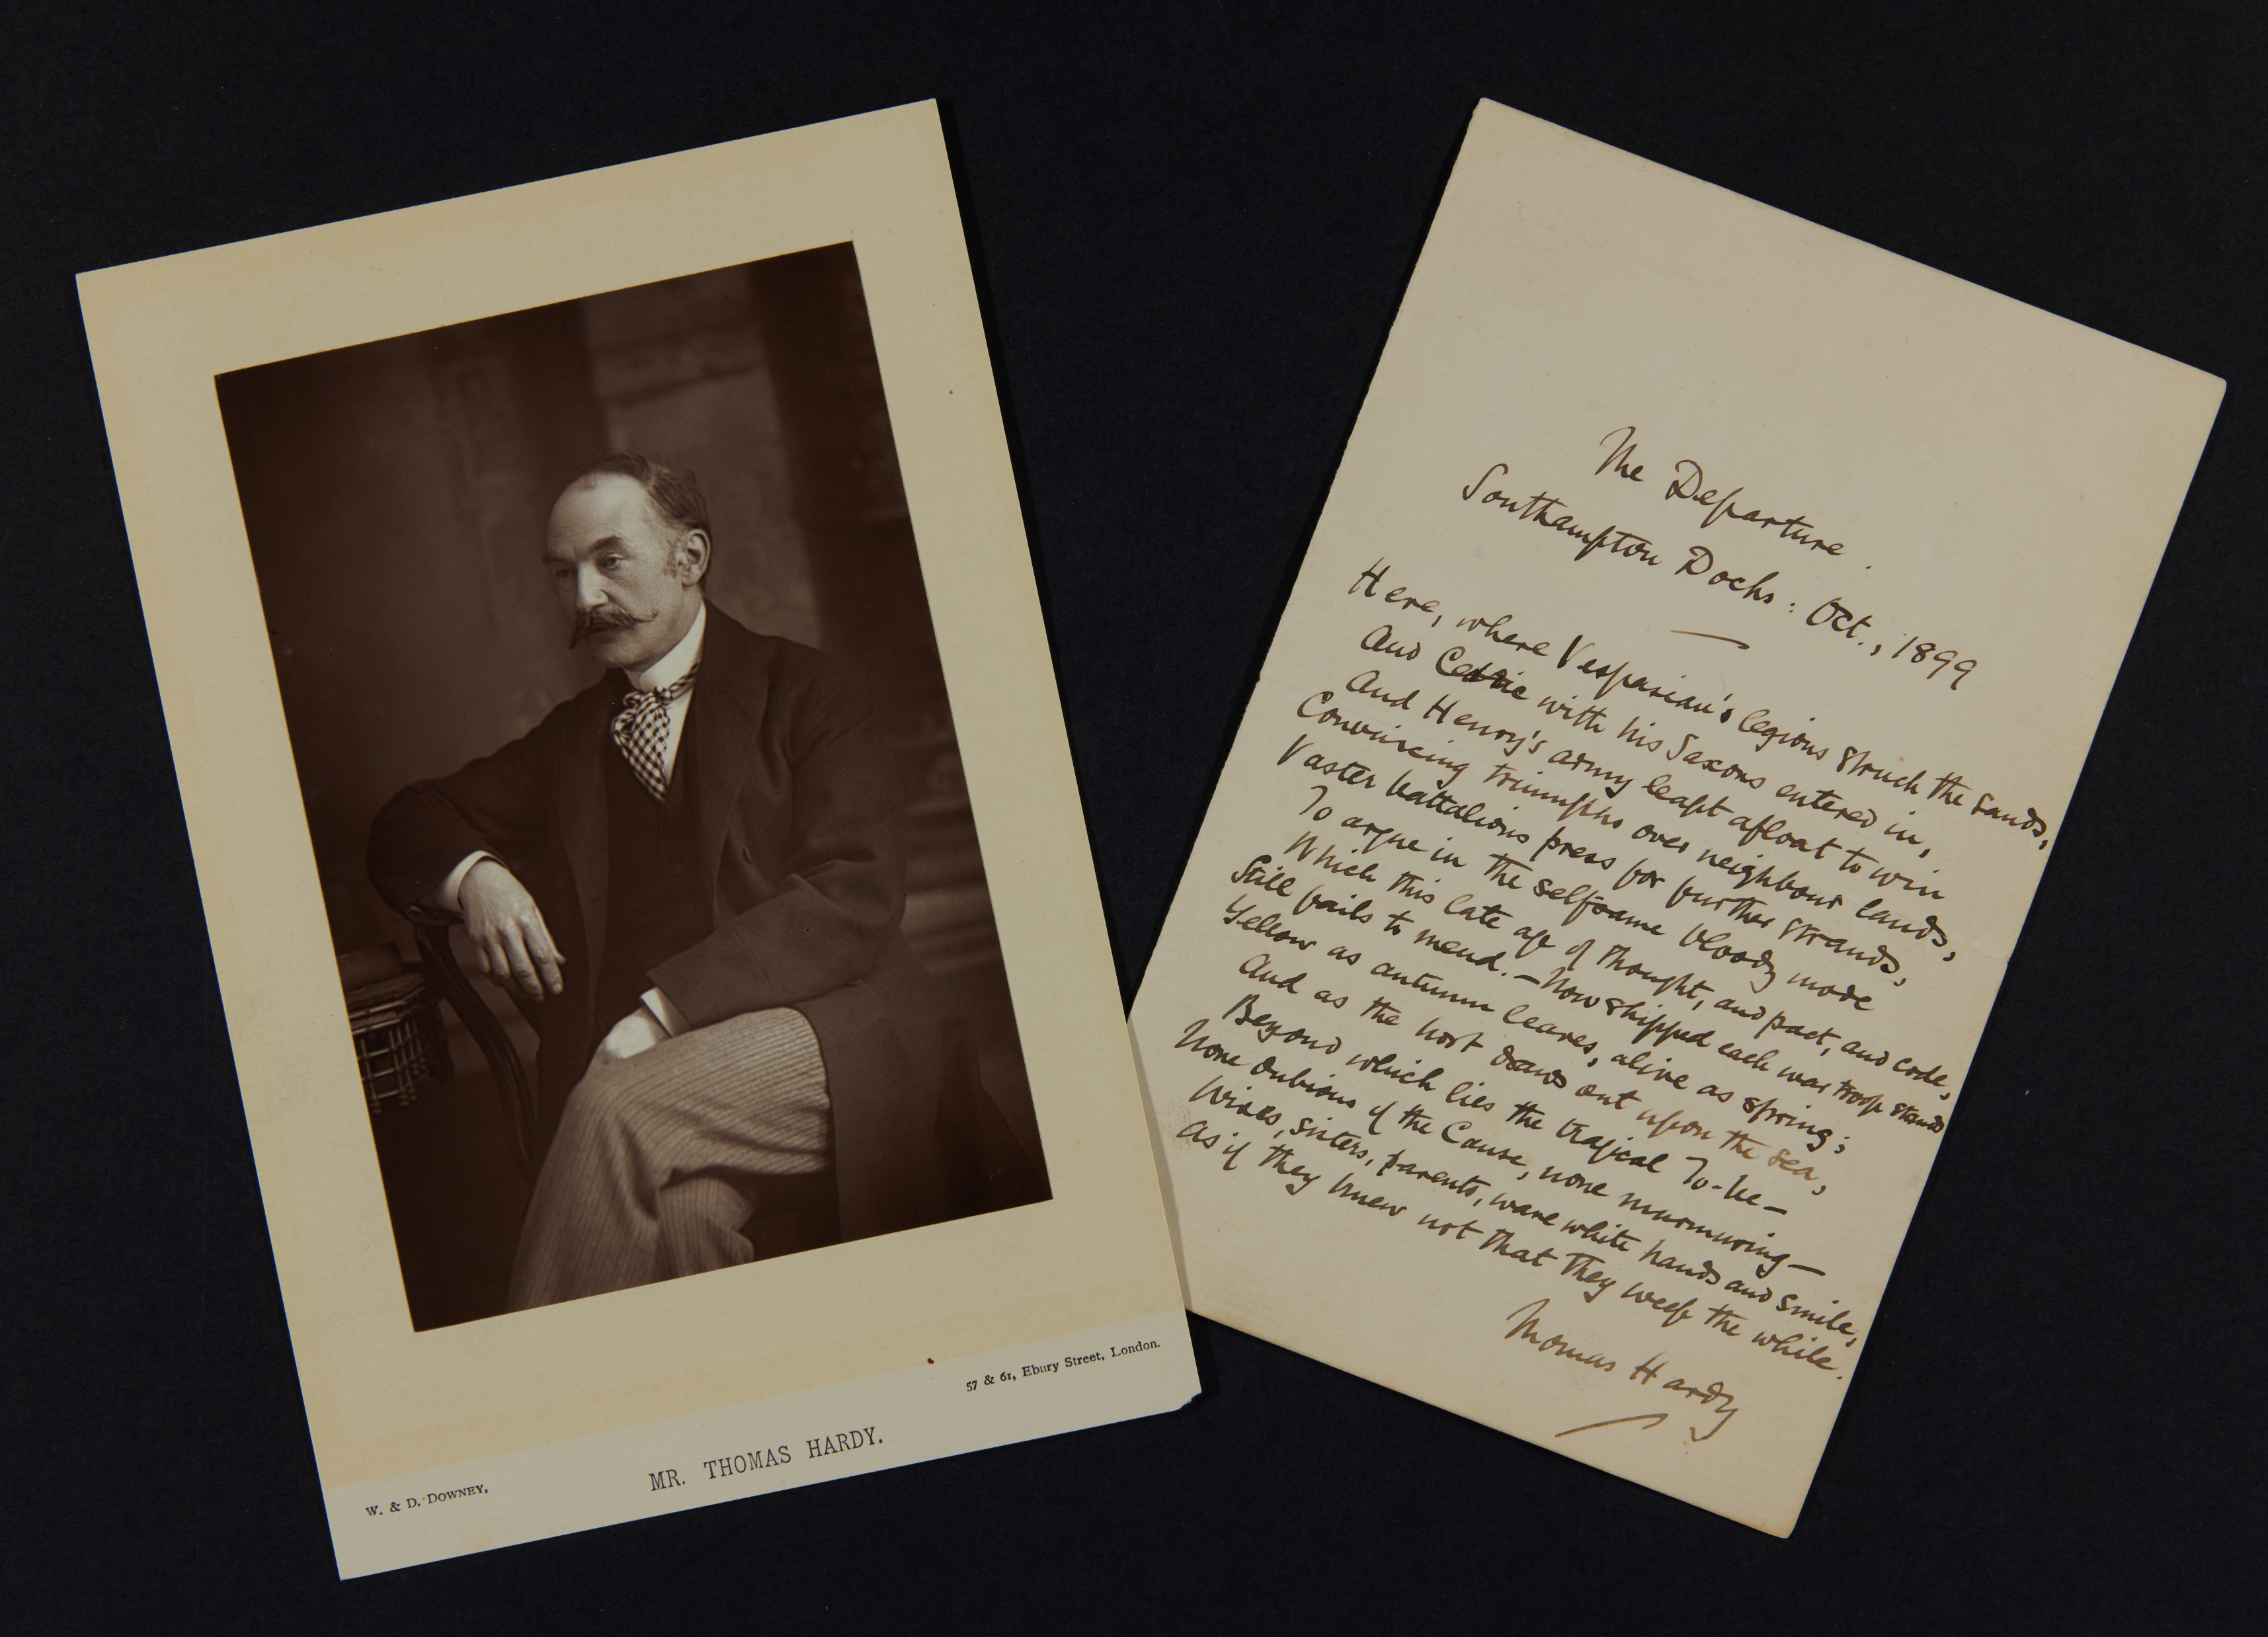 W. & D. DOWNEY,
57 & 61, Ebury Street, London.
MR. THOMAS HARDY.
The Departure.
Southampton Docks: Oct., 1899
Here, where Vespasian's legions struck the sands,
And with his Saxons entered in,
And Henry's army leapt afloat to win
Convincing triumphs over neighbour lands,
Vaster battalions press for further strands,
To argue in the selfsame bloody mode
Which this late age of thought, and pact, and code,
Still fails to mend. — Now shipped each war troop stands
Yellow as autumn leaves, alive as spring;
And as the host draws out upon the sea,
Beyond which lies the tragical To-be —
None dubious of the Cause, none murmuring —
Wives, sisters, parents, wave white hands and smile,
As if they knew not that they weep the while.
Thomas Hardy